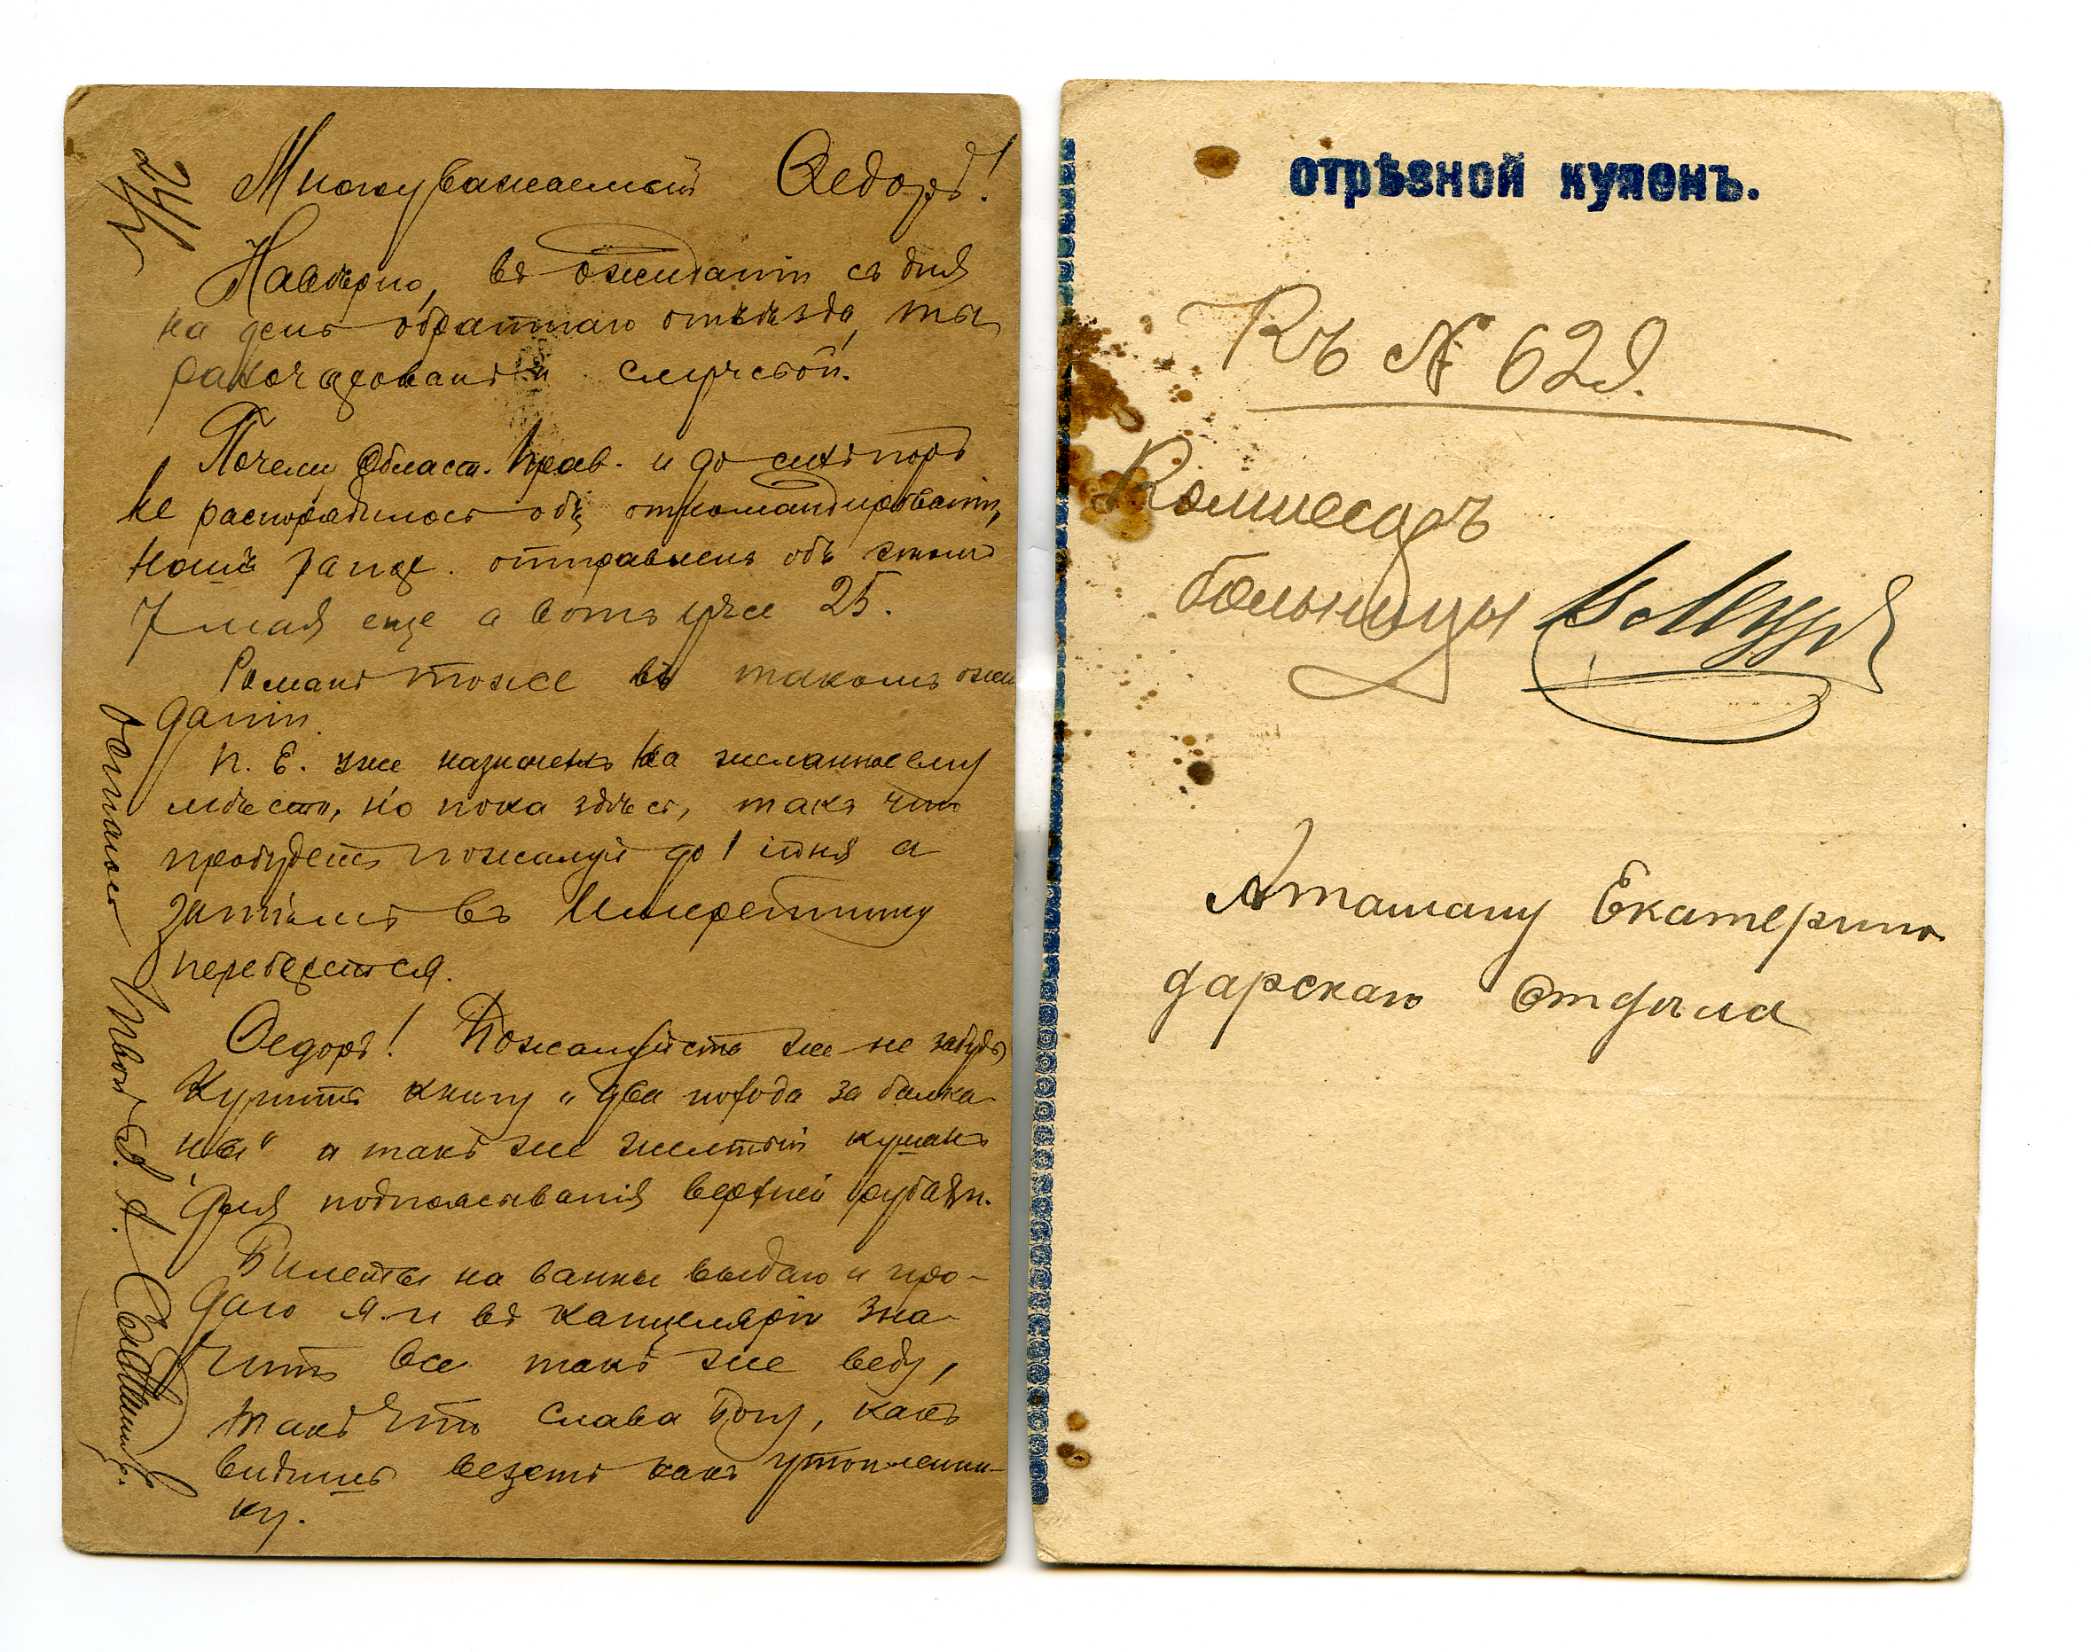 24/V
Многуважаемый Ѳедоръ!
Навѣрно, въ ожиданіи съ дня
на день обратнаго отъѣзда, ты
разочарованъ службой.
Почему Област. Прав. и до сихъ поръ
не распорядилось объ откомандированіи,
нашъ рапор. отправленъ объ этомъ
7 мая еще а вотъ уже 25.
Романъ тоже въ такомъ ожи
даніи.
П. Е. уже назначенъ на желанное ему
мѣсто, но пока здѣсь, такъ что
пробудетъ пожалуй до 1 іюня а
затѣмъ въ Имеретинку
переберется.
Ѳедоръ! Пожалуйста же не забудь
купить книгу „два похода за балка-
ны" а такъ же желтый кушакъ
для подпоясыванія верхней рубахи.
Билеты на ванны выдаю и про-
даю я и въ канцеляріи зна-
читъ все такъ же веду,
такъ что слава Богу, какъ
видишь везетъ какъ утопленни-
ку.
остаюсь твой А.
отрѣзной купонъ.
Къ № 629.
Комиссаръ
больницы
Атаману Екатерино
дарскаго Отдѣла